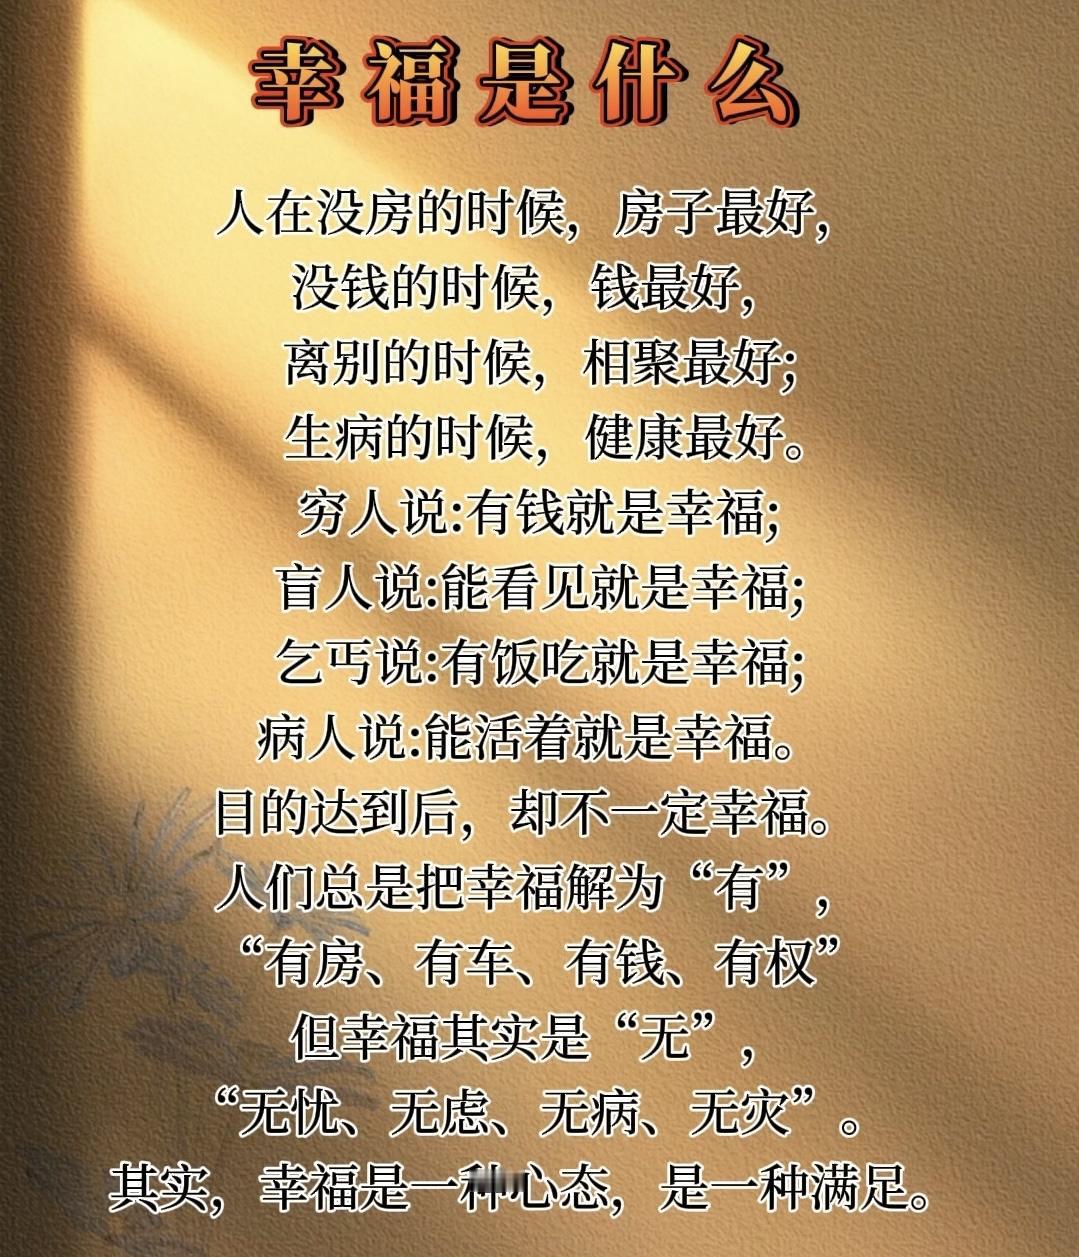 幸福是什么
人在没房的时候，房子最好，
没钱的时候，钱最好，
离别的时候，相聚最好；
生病的时候，健康最好。
穷人说:有钱就是幸福；
盲人说:能看见就是幸福；
乞丐说:有饭吃就是幸福；
病人说:能活着就是幸福。
目的达到后，却不一定幸福。
人们总是把幸福解为“有”，
“有房、有车、有钱、有权”
但幸福其实是“无”，
“无忧、无虑、无病、无灾”。
其实，幸福是一种心态，是一种满足。